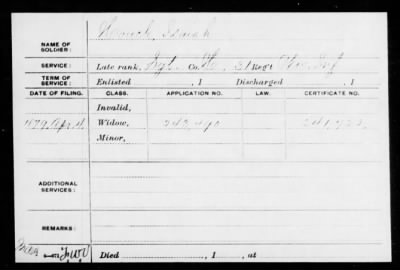 NAME OF SOLDIER: Isaiah
SERVICE: Late rank, Sgt. Co. 31 Regt Inf
TERM OF SERVICE: Enlisted , 1 Discharged , 1
DATE OF FILING. CLASS. APPLICATION NO. LAW. CERTIFICATE NO.
Invalid,
1879, Apr. Widow, 243,490
Minor,
ADDITIONAL SERVICES:
REMARKS:
Died , 1 , at